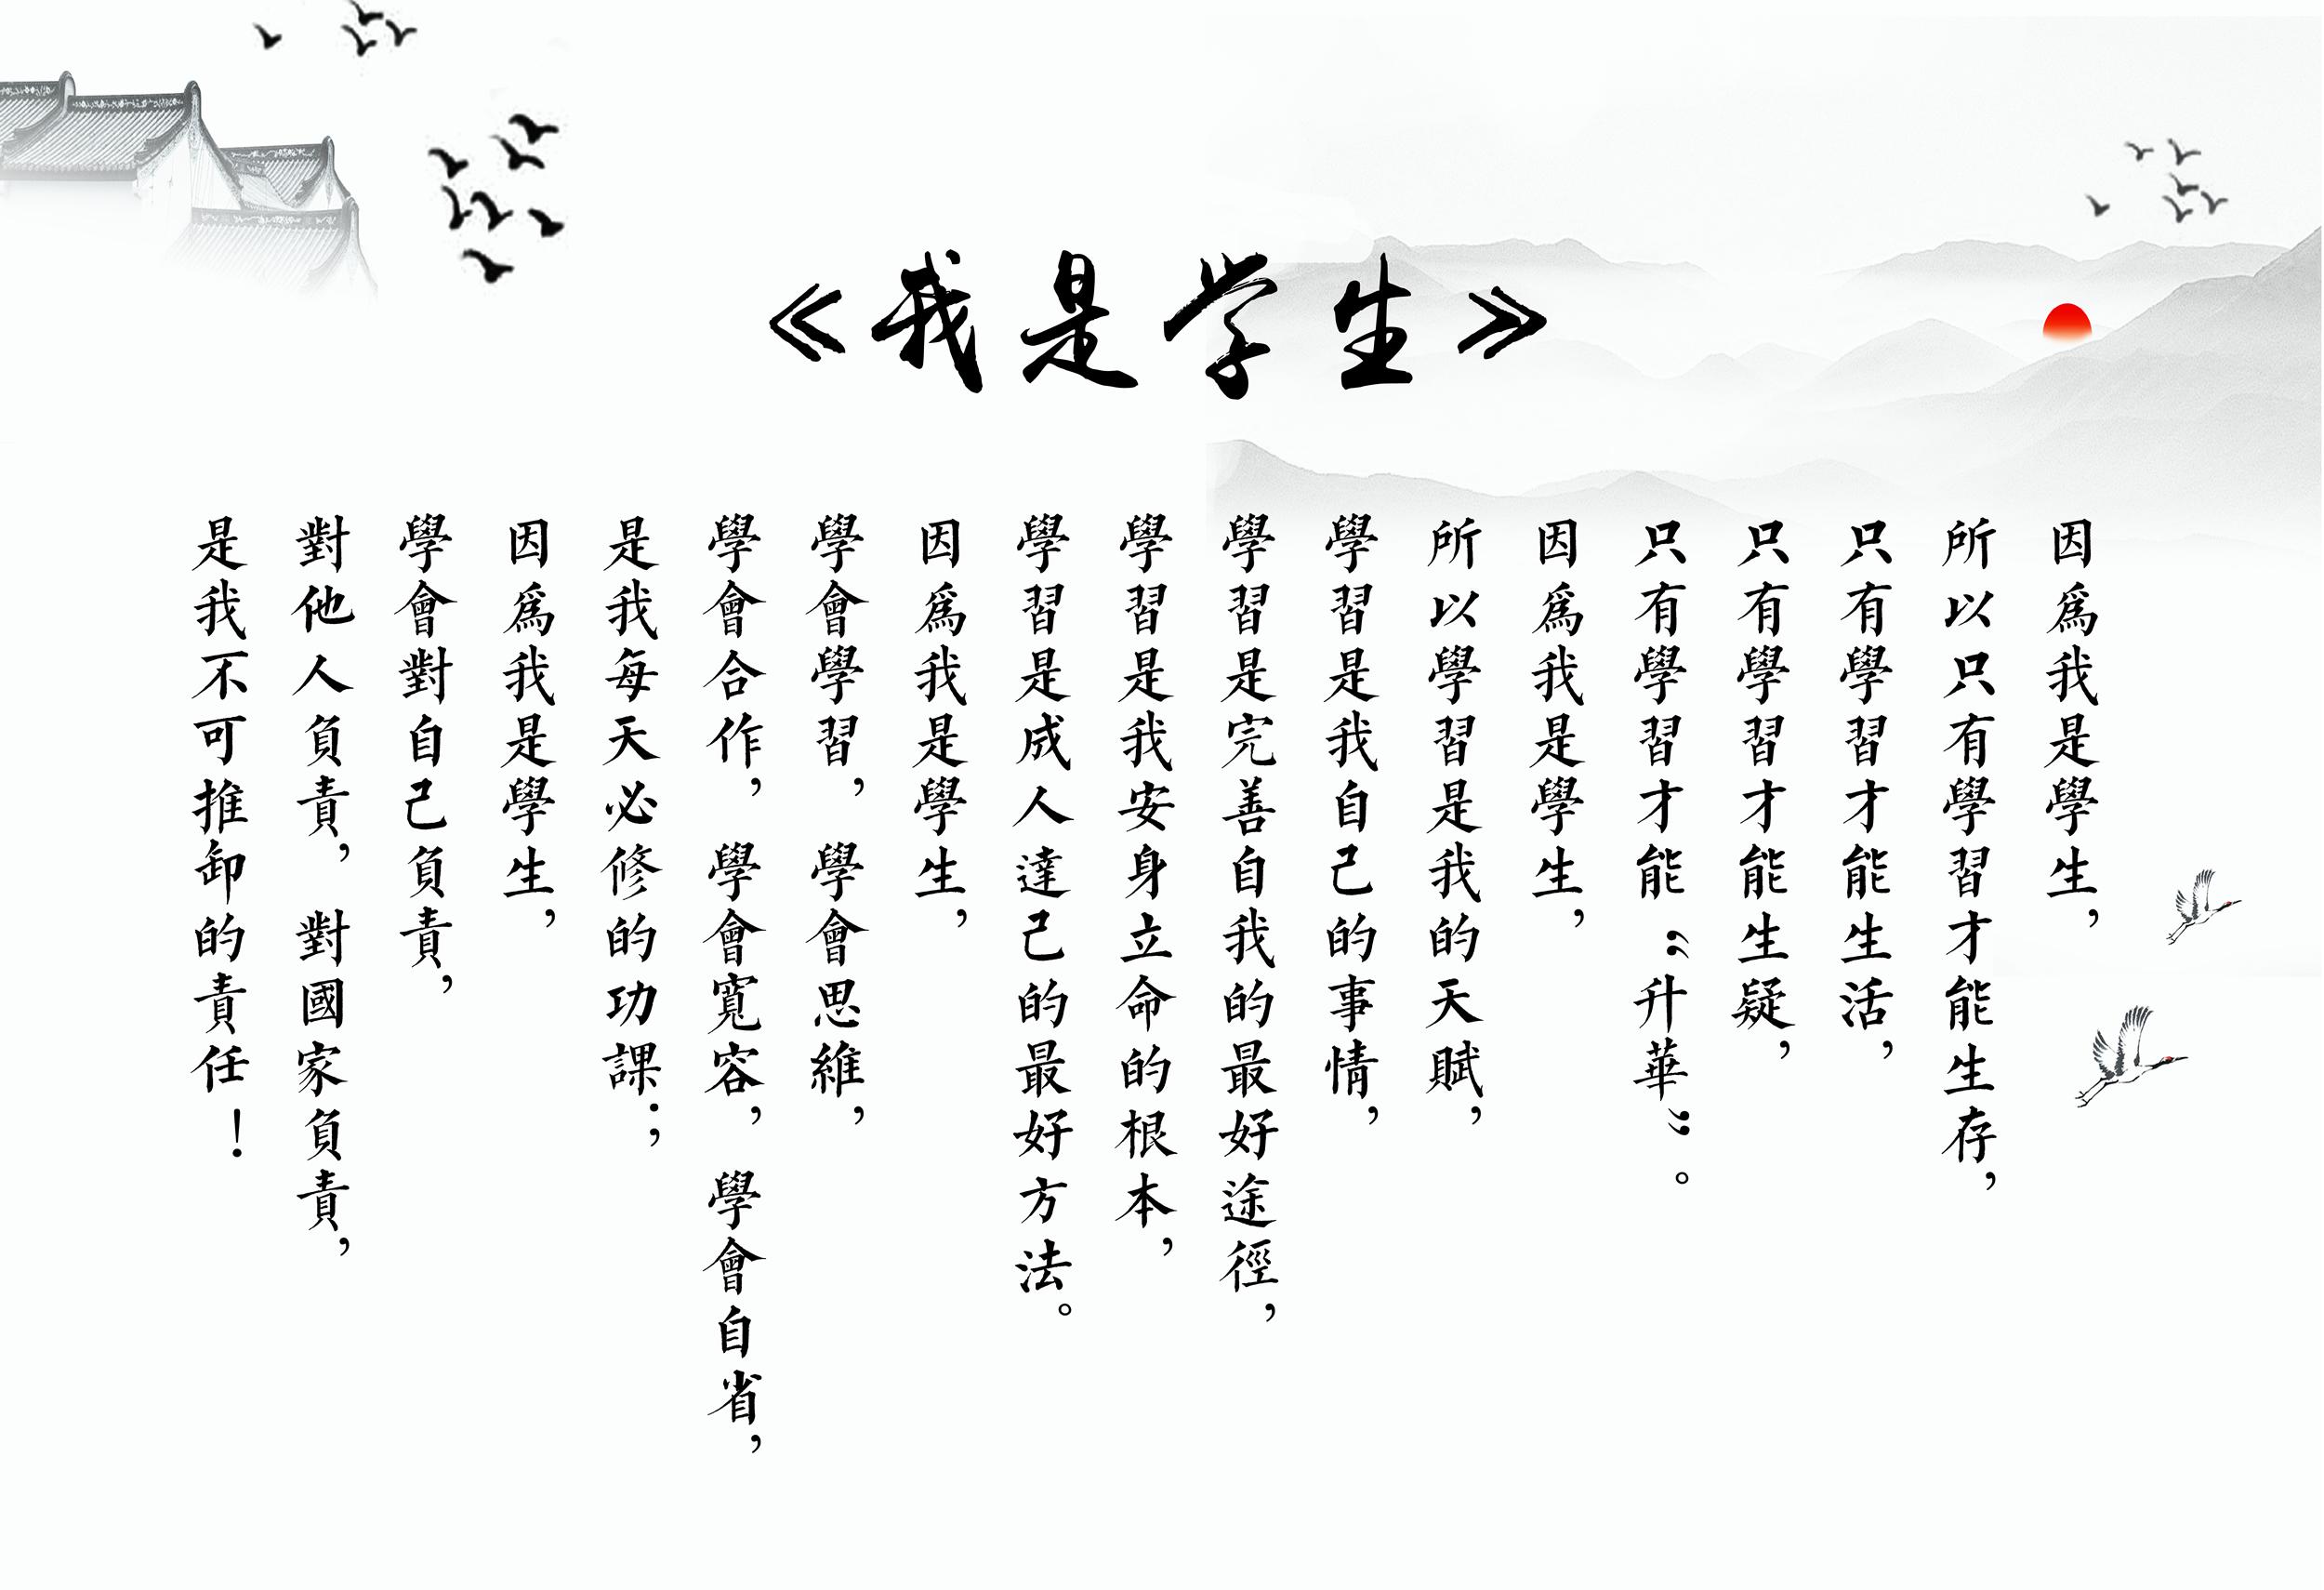 《我是学生》
因爲我是學生，
所以只有學習才能生存，
只有學習才能生活，
只有學習才能生疑，
只有學習才能“升華”。
因爲我是學生，
所以學習是我的天賦，
學習是我自己的事情，
學習是完善自我的最好途徑，
學習是我安身立命的根本，
學習是成人達己的最好方法。
因爲我是學生，
學會學習，學會思維，
學會合作，學會寬容，學會自省，
是我每天必修的功課；
因爲我是學生，
學會對自己負責，
對他人負責，對國家負責，
是我不可推卸的責任！